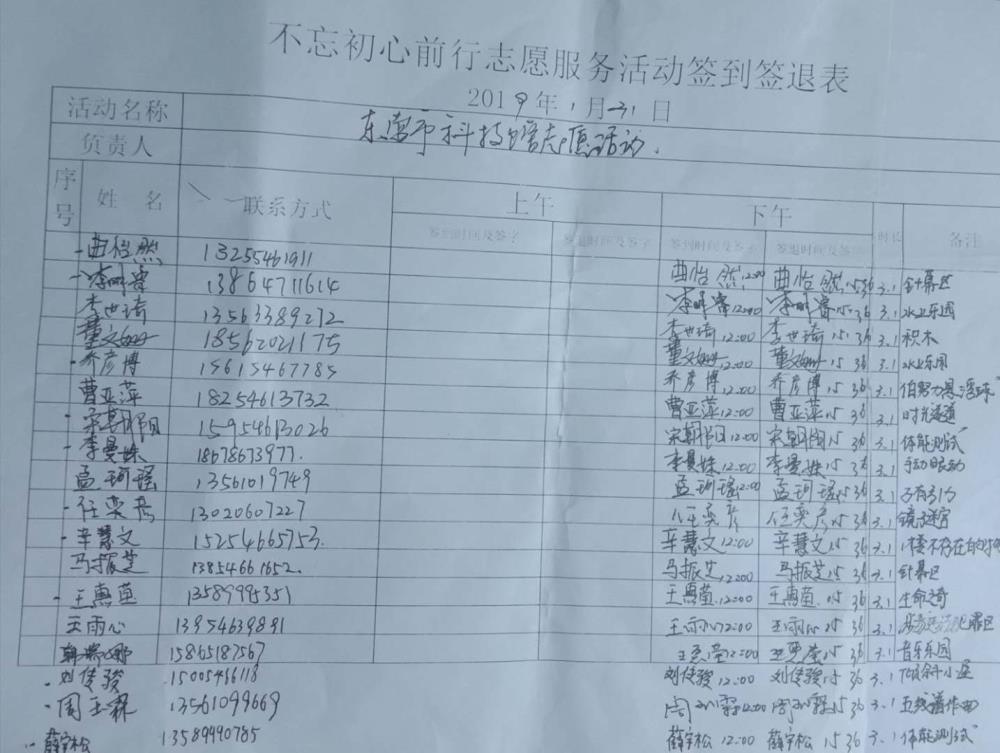 不忘初心前行志愿服务活动签到签退表
2019年1月31日
活动名称
东营市科技馆志愿活动.
负责人
序号 姓名 联系方式 上午 下午 时长 备注
签到时间及签字 签退时间及签字 签到时间及签字 签退时间及签字
曲怡然 13255461911 曲怡然12:00 曲怡然15 36 3.1
13864711614 12:00 15 36 3.1 水上乐园
李世琦 13563389272 李世琦12:00 李世琦15 36 3.1 积木
董文 18562021175 董文 12:00 董文 15 36 3.1 水上乐园
乔彦博 15615467785 乔彦博12:00 乔彦博15 36 3.1 伯努力悬浮球
曹亚萍 18254613732 曹亚萍12:00 曹亚萍15 36 3.1 时光通道
宋朝 15954613026 宋朝 12:00 宋朝 15 36 3.1 体能测试
李曼姝 18678673977. 李曼姝12:00 李曼姝15 36 3.1 手动眼动
孟珂瑶 13561019749 孟珂瑶12:00 孟珂瑶15 36 3.1 万有引力
任奕 13020607227 任奕 任奕 15 36 3.1 镜子迷宫
辛慧文 15254665753. 辛慧文12:00 辛慧文15 36 3.1 1楼不存在的
马振芝 13854661652. 马振芝12:00 马振芝15 36 3.1
王惠萱 13589995351 王惠萱12:00 王惠萱15 36 3.1 生命之奇
王雨心 13954639891 王雨心12:00 王雨心15 36 3.1
韩瑞娜 15865187567 12:00 15 36 3.1 音乐乐园
刘俊骏 15005456118 刘俊骏12:00 刘俊骏15 36 3.1 倾斜小屋
周玉霖 13561099669 周 霖12:00 周 霖15 36 3.1 五线谱作曲
薛宇松 13589990785 薛宇松12:00 薛宇松15 36 3.1 体能测试